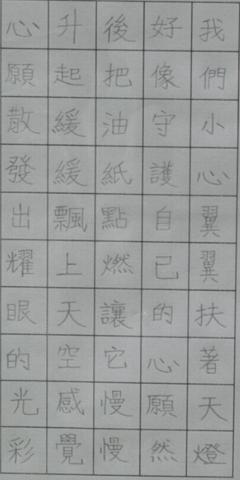 我們小心翼翼扶著天燈
好像守護自己的心願然
後把油紙點燃讓它慢慢
升起緩緩飄上天空感覺
心願散發出耀眼的光彩